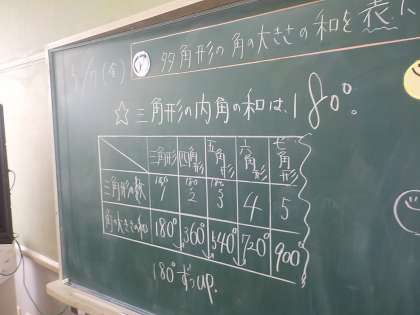 多角形の角の大きさの和を表に
☆三角形の内角の和は、180°。
三角形 四角形 五角形 六角形 七角形
三角形の数 1 2 3 4 5
角の大きさの和 180° 360° 540° 720° 900°
180°ずつup.